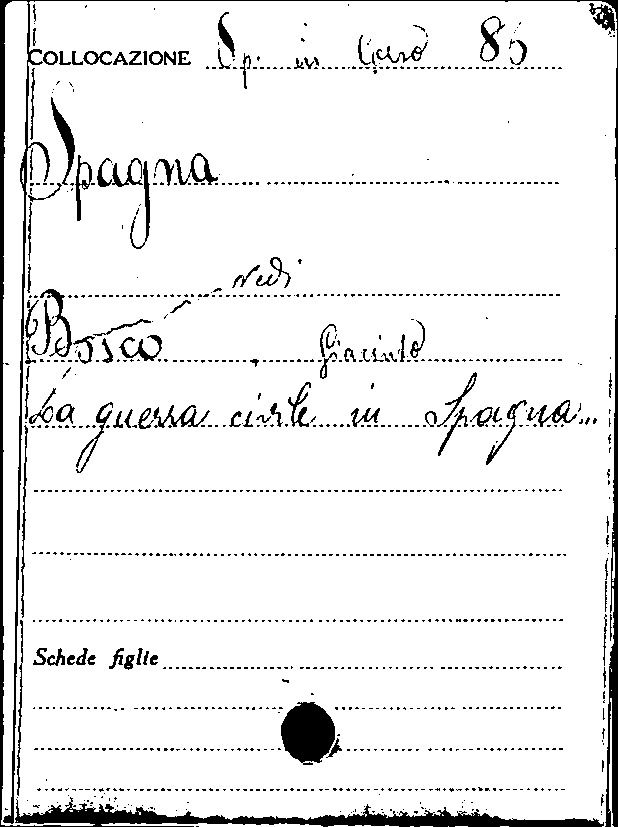 COLLOCAZIONE Sp. in 85
Spagna
vedi
Bosco, Giacinto
La guerra civile in Spagna...
Schede figlie